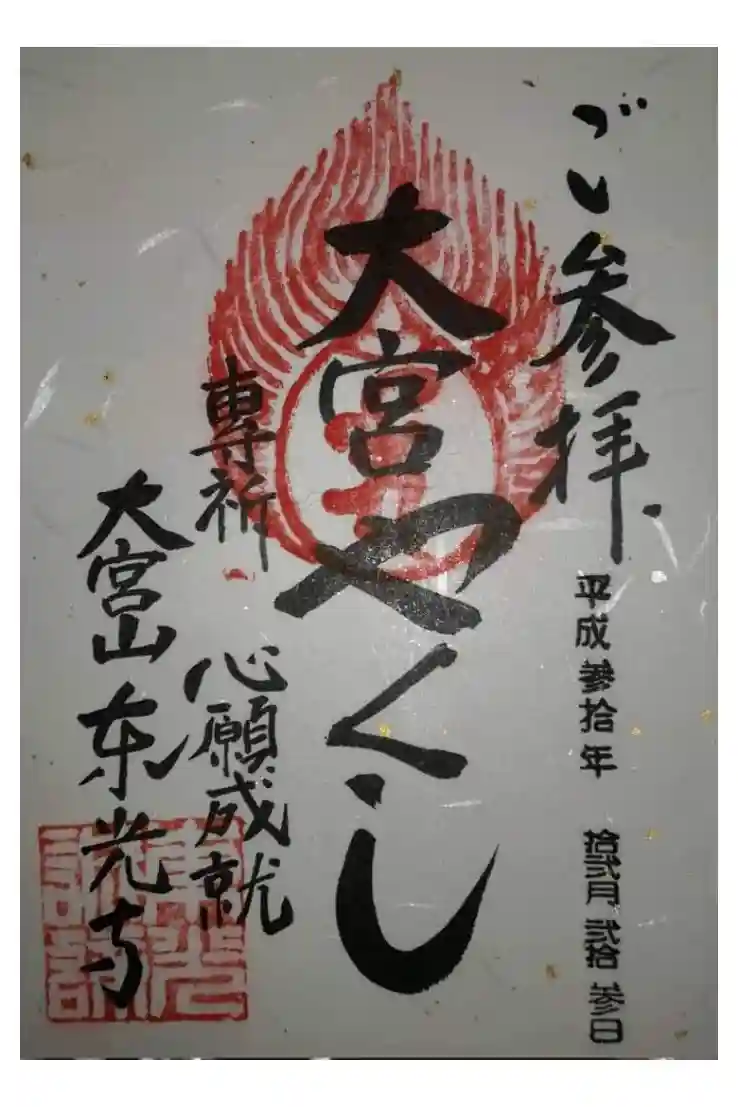 ご参拝
平成参拾年 拾弐月 弐拾参日
大宮やくし
専祈 心願成就
大宮山東光寺